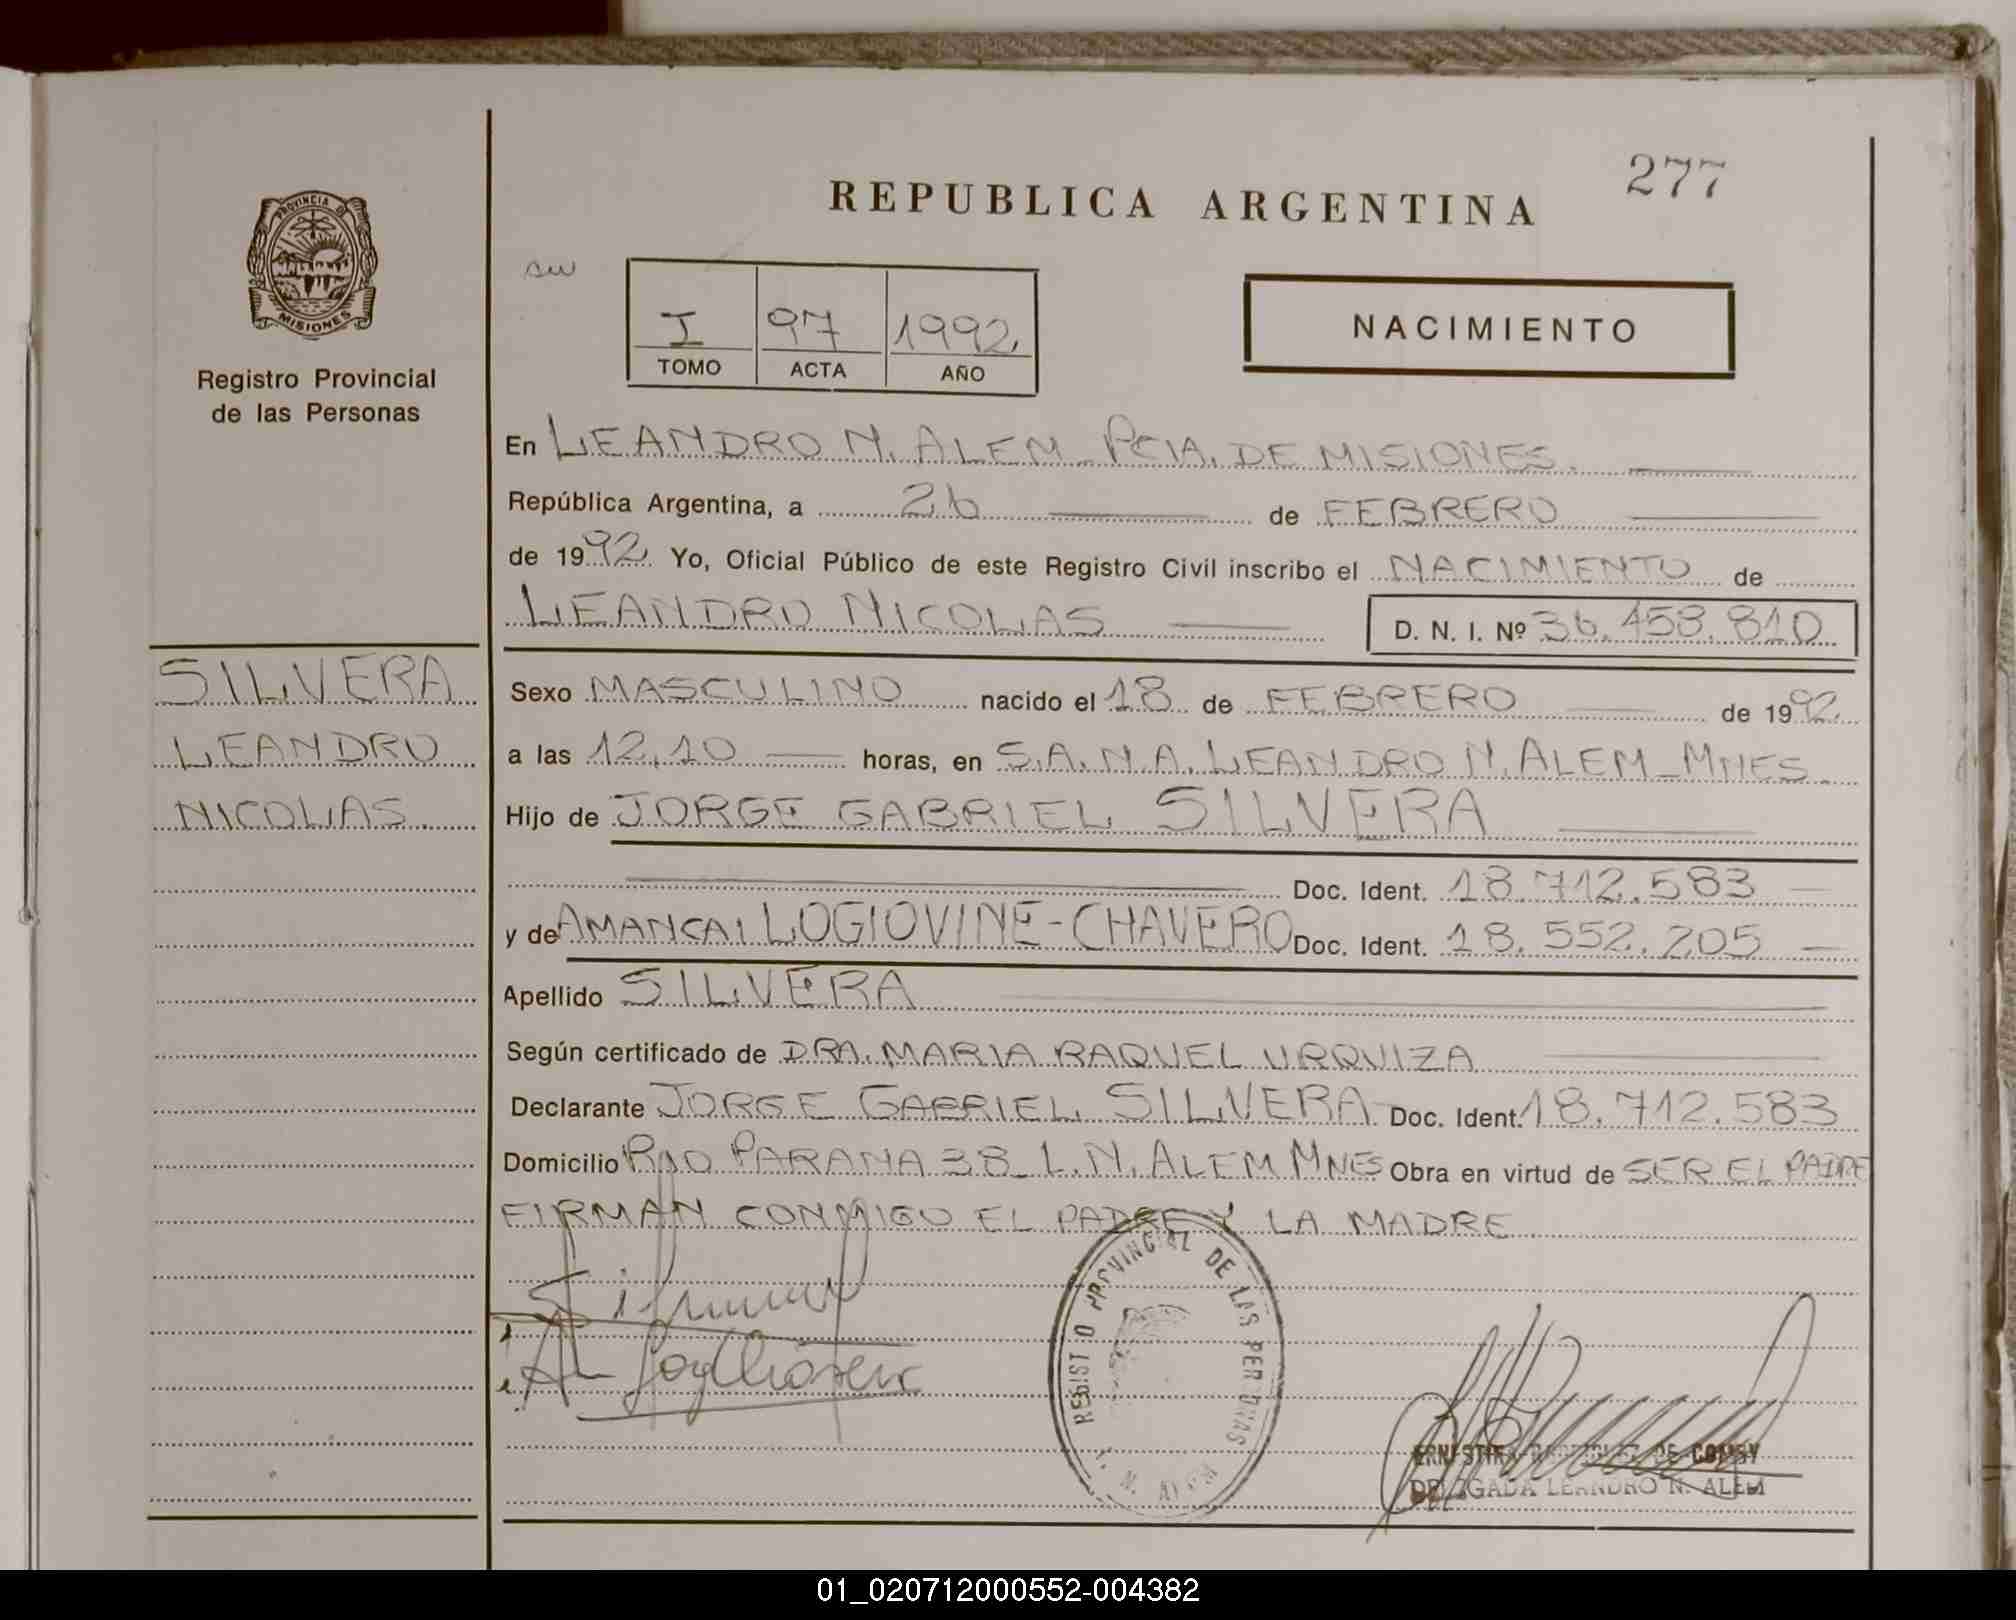 277
REPUBLICA ARGENTINA
PROVINCIA DE
MISIONES
Registro Provincial
de las Personas
I 97 1992
TOMO ACTA AÑO
NACIMIENTO
En LEANDRO N. ALEM PCIA. DE MISIONES.
República Argentina, a 26 de FEBRERO
de 1992 Yo, Oficial Público de este Registro Civil inscribo el NACIMIENTO de
LEANDRO NICOLAS D. N. I. Nº 36.458.810
SILVERA
LEANDRO
NICOLAS.
Sexo MASCULINO nacido el 18 de FEBRERO de 1992
a las 12,10 horas, en S.A.N.A. LEANDRO N. ALEM_MNES.
Hijo de JORGE GABRIEL SILVERA
Doc. Ident. 18.712.583
y de AMANCAI LOGIOVINE-CHAVERO Doc. Ident. 18.552.205
Apellido SILVERA
Según certificado de DRA. MARIA RAQUEL URQUIZA
Declarante JORGE GABRIEL SILVERA Doc. Ident. 18.712.583
Domicilio RIO PARANA 38_L.N. ALEM MNES Obra en virtud de SER EL PADRE
FIRMAN CONMIGO EL PADRE Y LA MADRE
REGISTRO PROVINCIAL DE LAS PERSONAS
L. N. ALEM
ERNESTINA RODRIGUEZ DE
DELEGADA LEANDRO N. ALEM
01_020712000552-004382